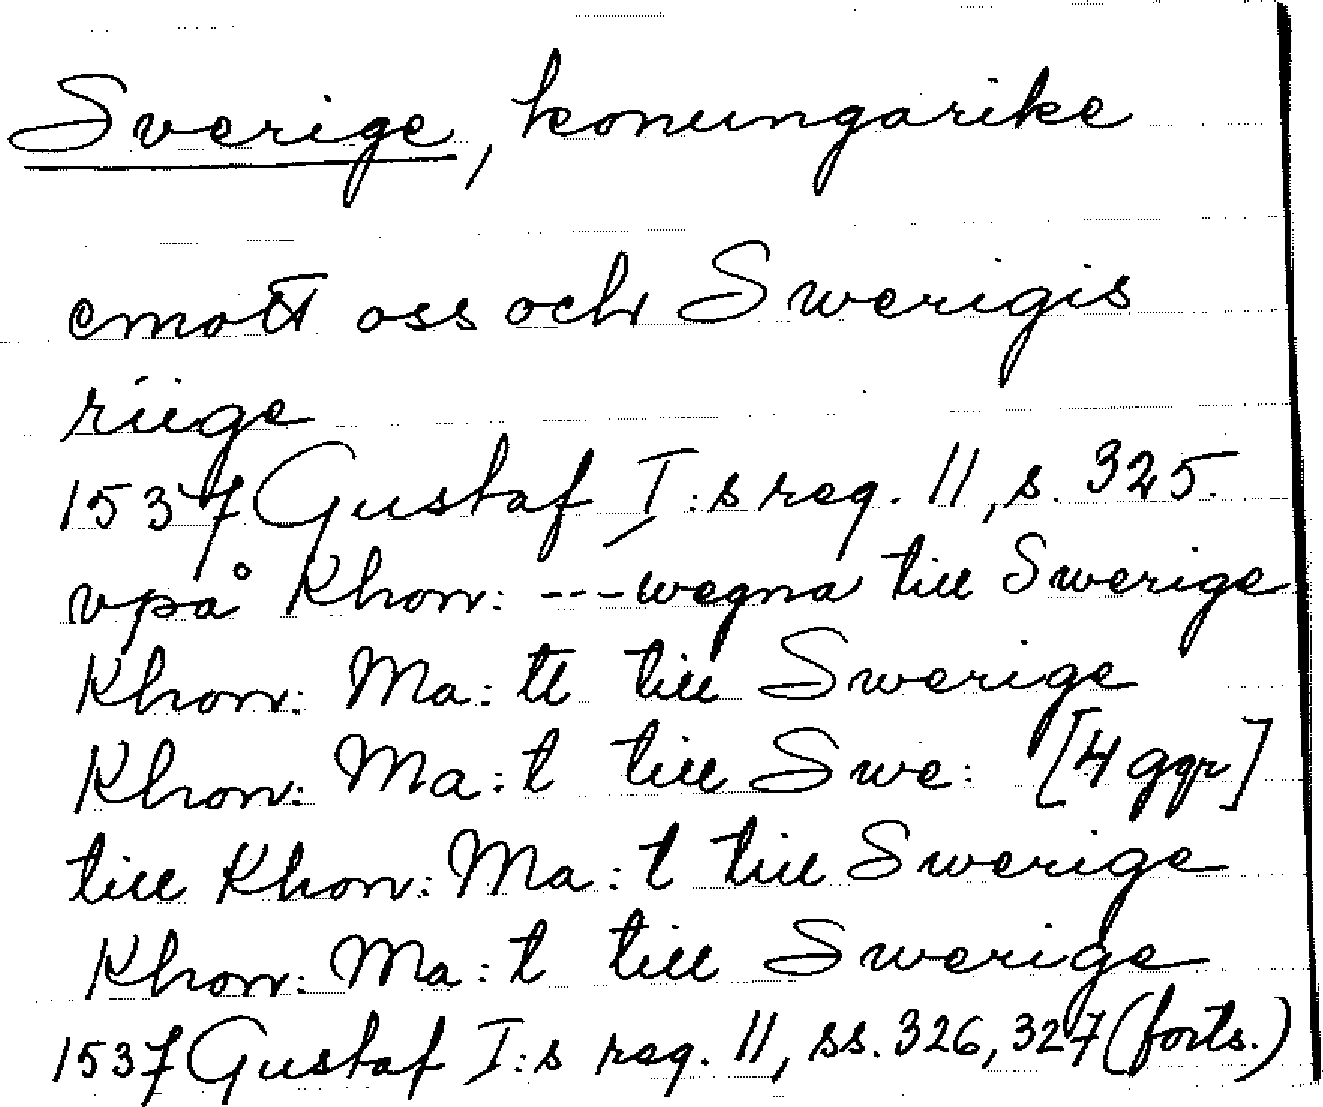 Sverige, konungarike
emott oss och Swerigis
riige
1537 Gustaf I:s reg. 11, s. 325.
vpå Khon: --- wegna till Swerige
Khon: Ma: tt till Swerige
Khon: Ma: t till Swe: [4 ggr]
till Khon: Ma: t till Swerige
Khon: Ma: t till Swerige
1537 Gustaf I:s reg. 11, ss. 326, 327 (forts.)